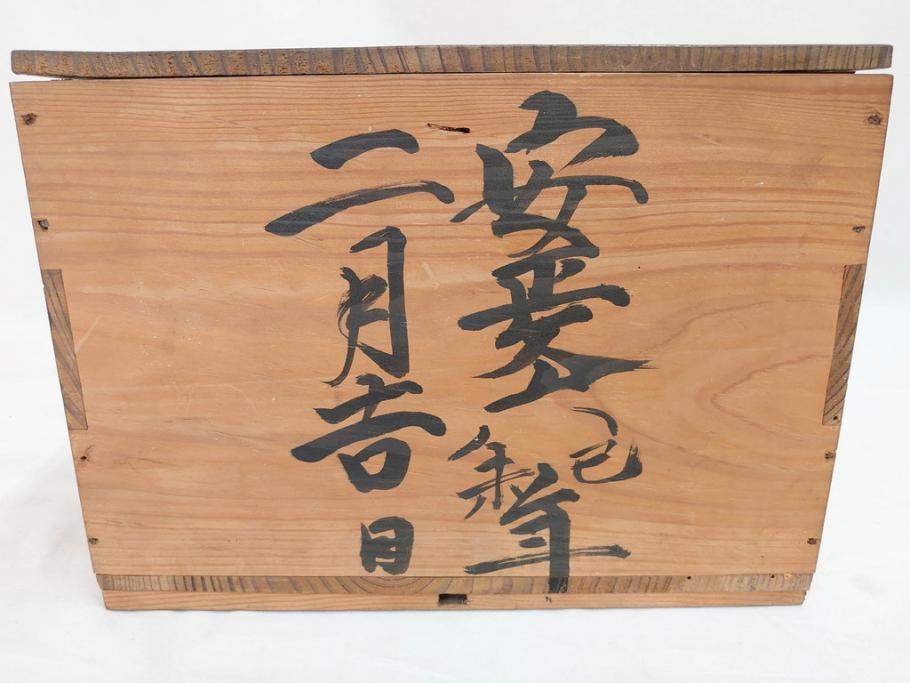 安政六己未年
二月吉日